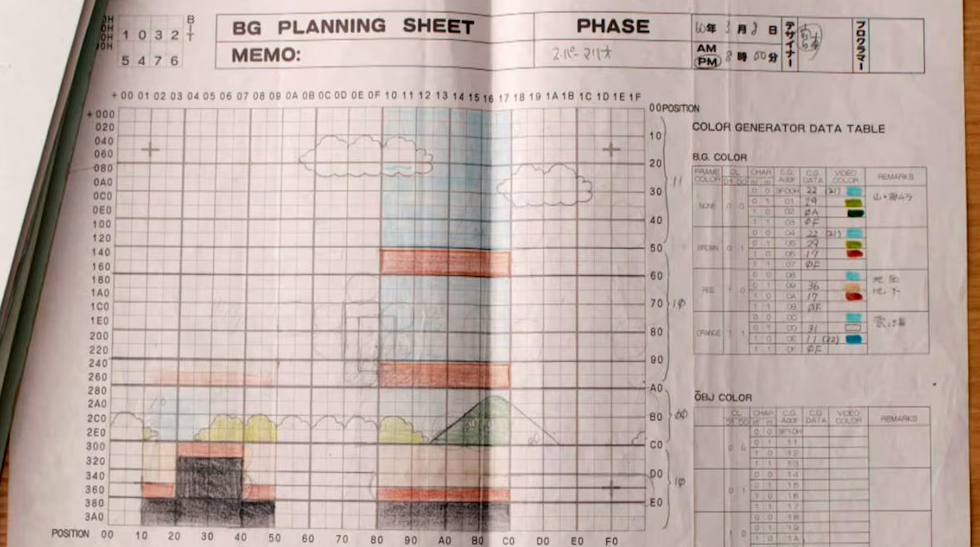 1 0 3 2
5 4 7 6
BIT
BG PLANNING SHEET
PHASE
MEMO:
スーパーマリオ
60年 3月 8日
AM
PM 8時 00分
デザイナー
プログラマー
+00 01 02 03 04 05 06 07 08 09 0A 0B 0C 0D 0E 0F 10 11 12 13 14 15 16 17 18 19 1A 1B 1C 1D 1E 1F
00 POSITION
+000
020
040
060
080
0A0
0C0
0E0
100
120
140
160
180
1A0
1C0
1E0
200
220
240
260
280
2A0
2C0
2E0
300
320
340
360
380
3A0
10
20
30
40
50
60
70
80
90
A0
B0
C0
D0
E0
11
10
00
10
POSITION 00 10 20 30 40 50 60 70 80 90 A0 B0 C0 D0 E0 F0
COLOR GENERATOR DATA TABLE
B.G. COLOR
FRAME COLOR
CHAR
C.G. Addr
C.G. DATA
VIDEO COLOR
REMARKS
NONE 0 0
0 0 3F00H 22 (21)
0 1 01 29
1 0 02 0A
1 1 03 0F
BROWN 0 1
0 0 04 22 (21)
0 1 05 29
1 0 06 17
1 1 07 0F
RED 1 0
0 0 08
0 1 09 36
1 0 0A 17
1 1 0B 0F
地面
地下
ORANGE 1 1
31
11 (22)
0F
OBJ COLOR
CHAR
C.G. Addr
C.G. DATA
VIDEO COLOR
REMARKS
0 0
0 0 3F10H
0 1 11
1 0 12
1 1 13
0 1
0 0 14
0 1 15
1 0 16
1 1 17
0 0 18
0 1 19
1 0 1A